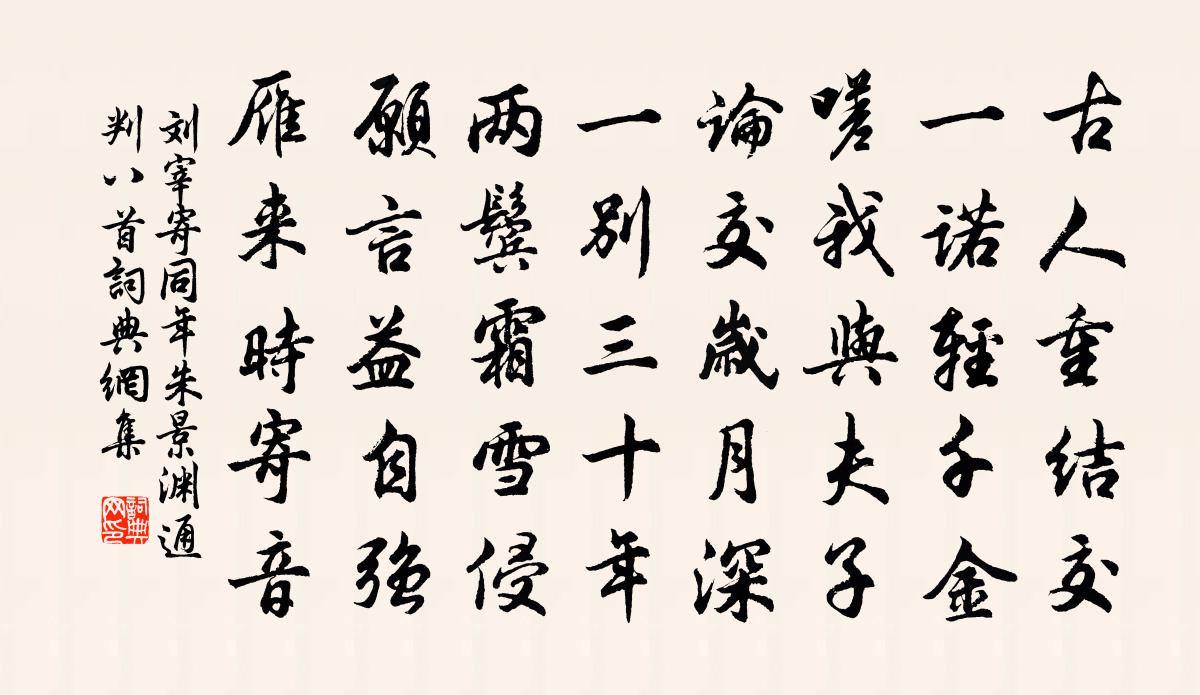 古人重结交
一诺輕千金
嗟我與夫子
論交歲月深
一别三十年
两鬓霜雪侵
願言益自强
雁来時寄音
刘宰寄同年朱景渊通
判八首詞典網集
詞典网印